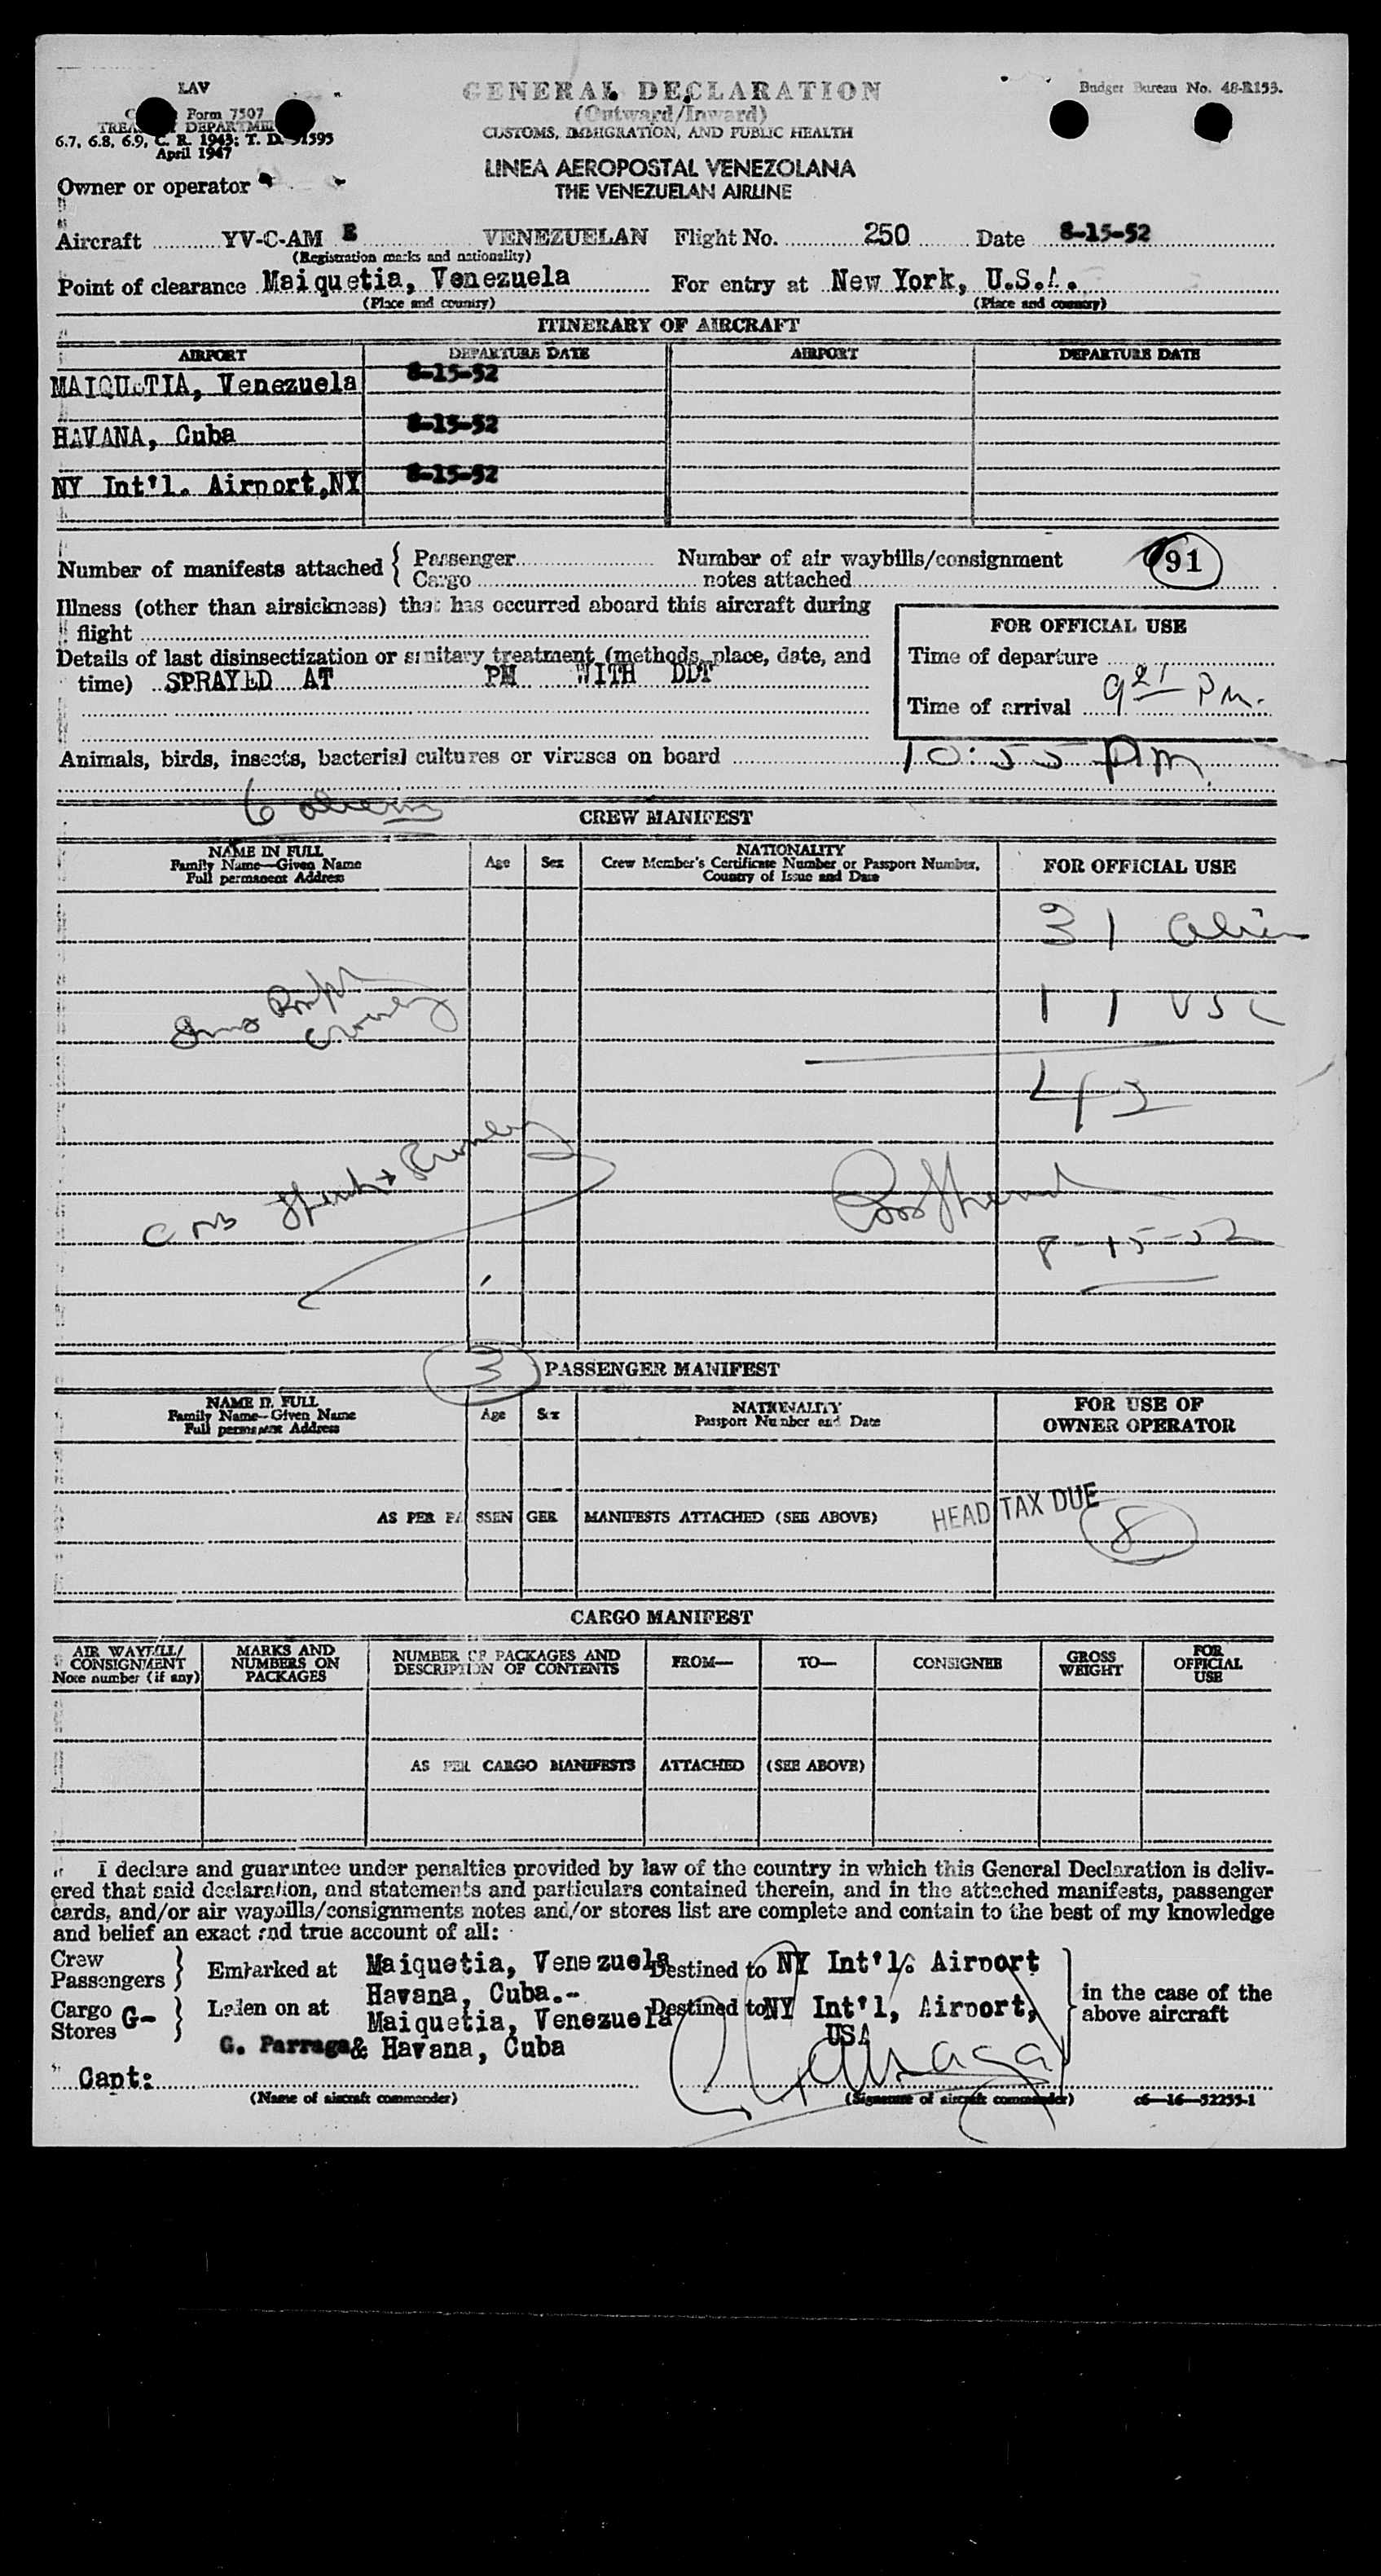 LAV
Form 7507
TREASURY DEPARTMENT
6.7, 6.8, 6.9, C. R. 1943; T. D. 51595
April 1947
GENERAL DECLARATION
(Outward/Inward)
CUSTOMS, IMMIGRATION, AND PUBLIC HEALTH
Budget Bureau No. 48-R153.
LINEA AEROPOSTAL VENEZOLANA
THE VENEZUELAN AIRLINE
Owner or operator
Aircraft YV-C-AM E VENEZUELAN Flight No. 250 Date 8-15-52
(Registration marks and nationality)
Point of clearance Maiquetia, Venezuela For entry at New York, U.S.A.
(Place and country) (Place and country)
ITINERARY OF AIRCRAFT
AIRPORT DEPARTURE DATE AIRPORT DEPARTURE DATE
MAIQUETIA, Venezuela 8-15-52
HAVANA, Cuba 8-15-52
NY Int'l. Airport,NY 8-15-52
Number of manifests attached { Passenger Number of air waybills/consignment 91
Cargo notes attached
Illness (other than airsickness) that has occurred aboard this aircraft during
flight
FOR OFFICIAL USE
Details of last disinsectization or sanitary treatment (methods, place, date, and
time) SPRAYED AT PM WITH DDT
Time of departure
Time of arrival 9 21 PM.
Animals, birds, insects, bacterial cultures or viruses on board 10:55 PM.
6 aliens
CREW MANIFEST
NAME IN FULL
Family Name—Given Name
Full permanent Address
Age Sex
NATIONALITY
Crew Member's Certificate Number or Passport Number,
Country of Issue and Date
FOR OFFICIAL USE
31 alien
11 USC
42
8-15-52
3
PASSENGER MANIFEST
NAME IN FULL
Family Name—Given Name
Full permanent Address
Age Sex
NATIONALITY
Passport Number and Date
FOR USE OF
OWNER OPERATOR
AS PER PASSENGER MANIFESTS ATTACHED (SEE ABOVE)
HEAD TAX DUE
8
CARGO MANIFEST
AIR WAYBILL/
CONSIGNMENT
Note number (if any)
MARKS AND
NUMBERS ON
PACKAGES
NUMBER OF PACKAGES AND
DESCRIPTION OF CONTENTS
FROM—
TO—
CONSIGNEE
GROSS
WEIGHT
FOR
OFFICIAL
USE
AS PER CARGO MANIFESTS ATTACHED (SEE ABOVE)
I declare and guarantee under penalties provided by law of the country in which this General Declaration is deliv-
ered that said declaration, and statements and particulars contained therein, and in the attached manifests, passenger
cards, and/or air waybills/consignments notes and/or stores list are complete and contain to the best of my knowledge
and belief an exact and true account of all:
Crew
Passengers } Embarked at Maiquetia, Venezuela Destined to NY Int'l. Airport
Havana, Cuba.-
Cargo G-
Stores } Laden on at Maiquetia, Venezuela Destined to NY Int'l, Airport,
} in the case of the
above aircraft
G. Parraga & Havana, Cuba USA
Capt:
(Name of aircraft commander) (Signature of aircraft commander) c6—16—52255-1